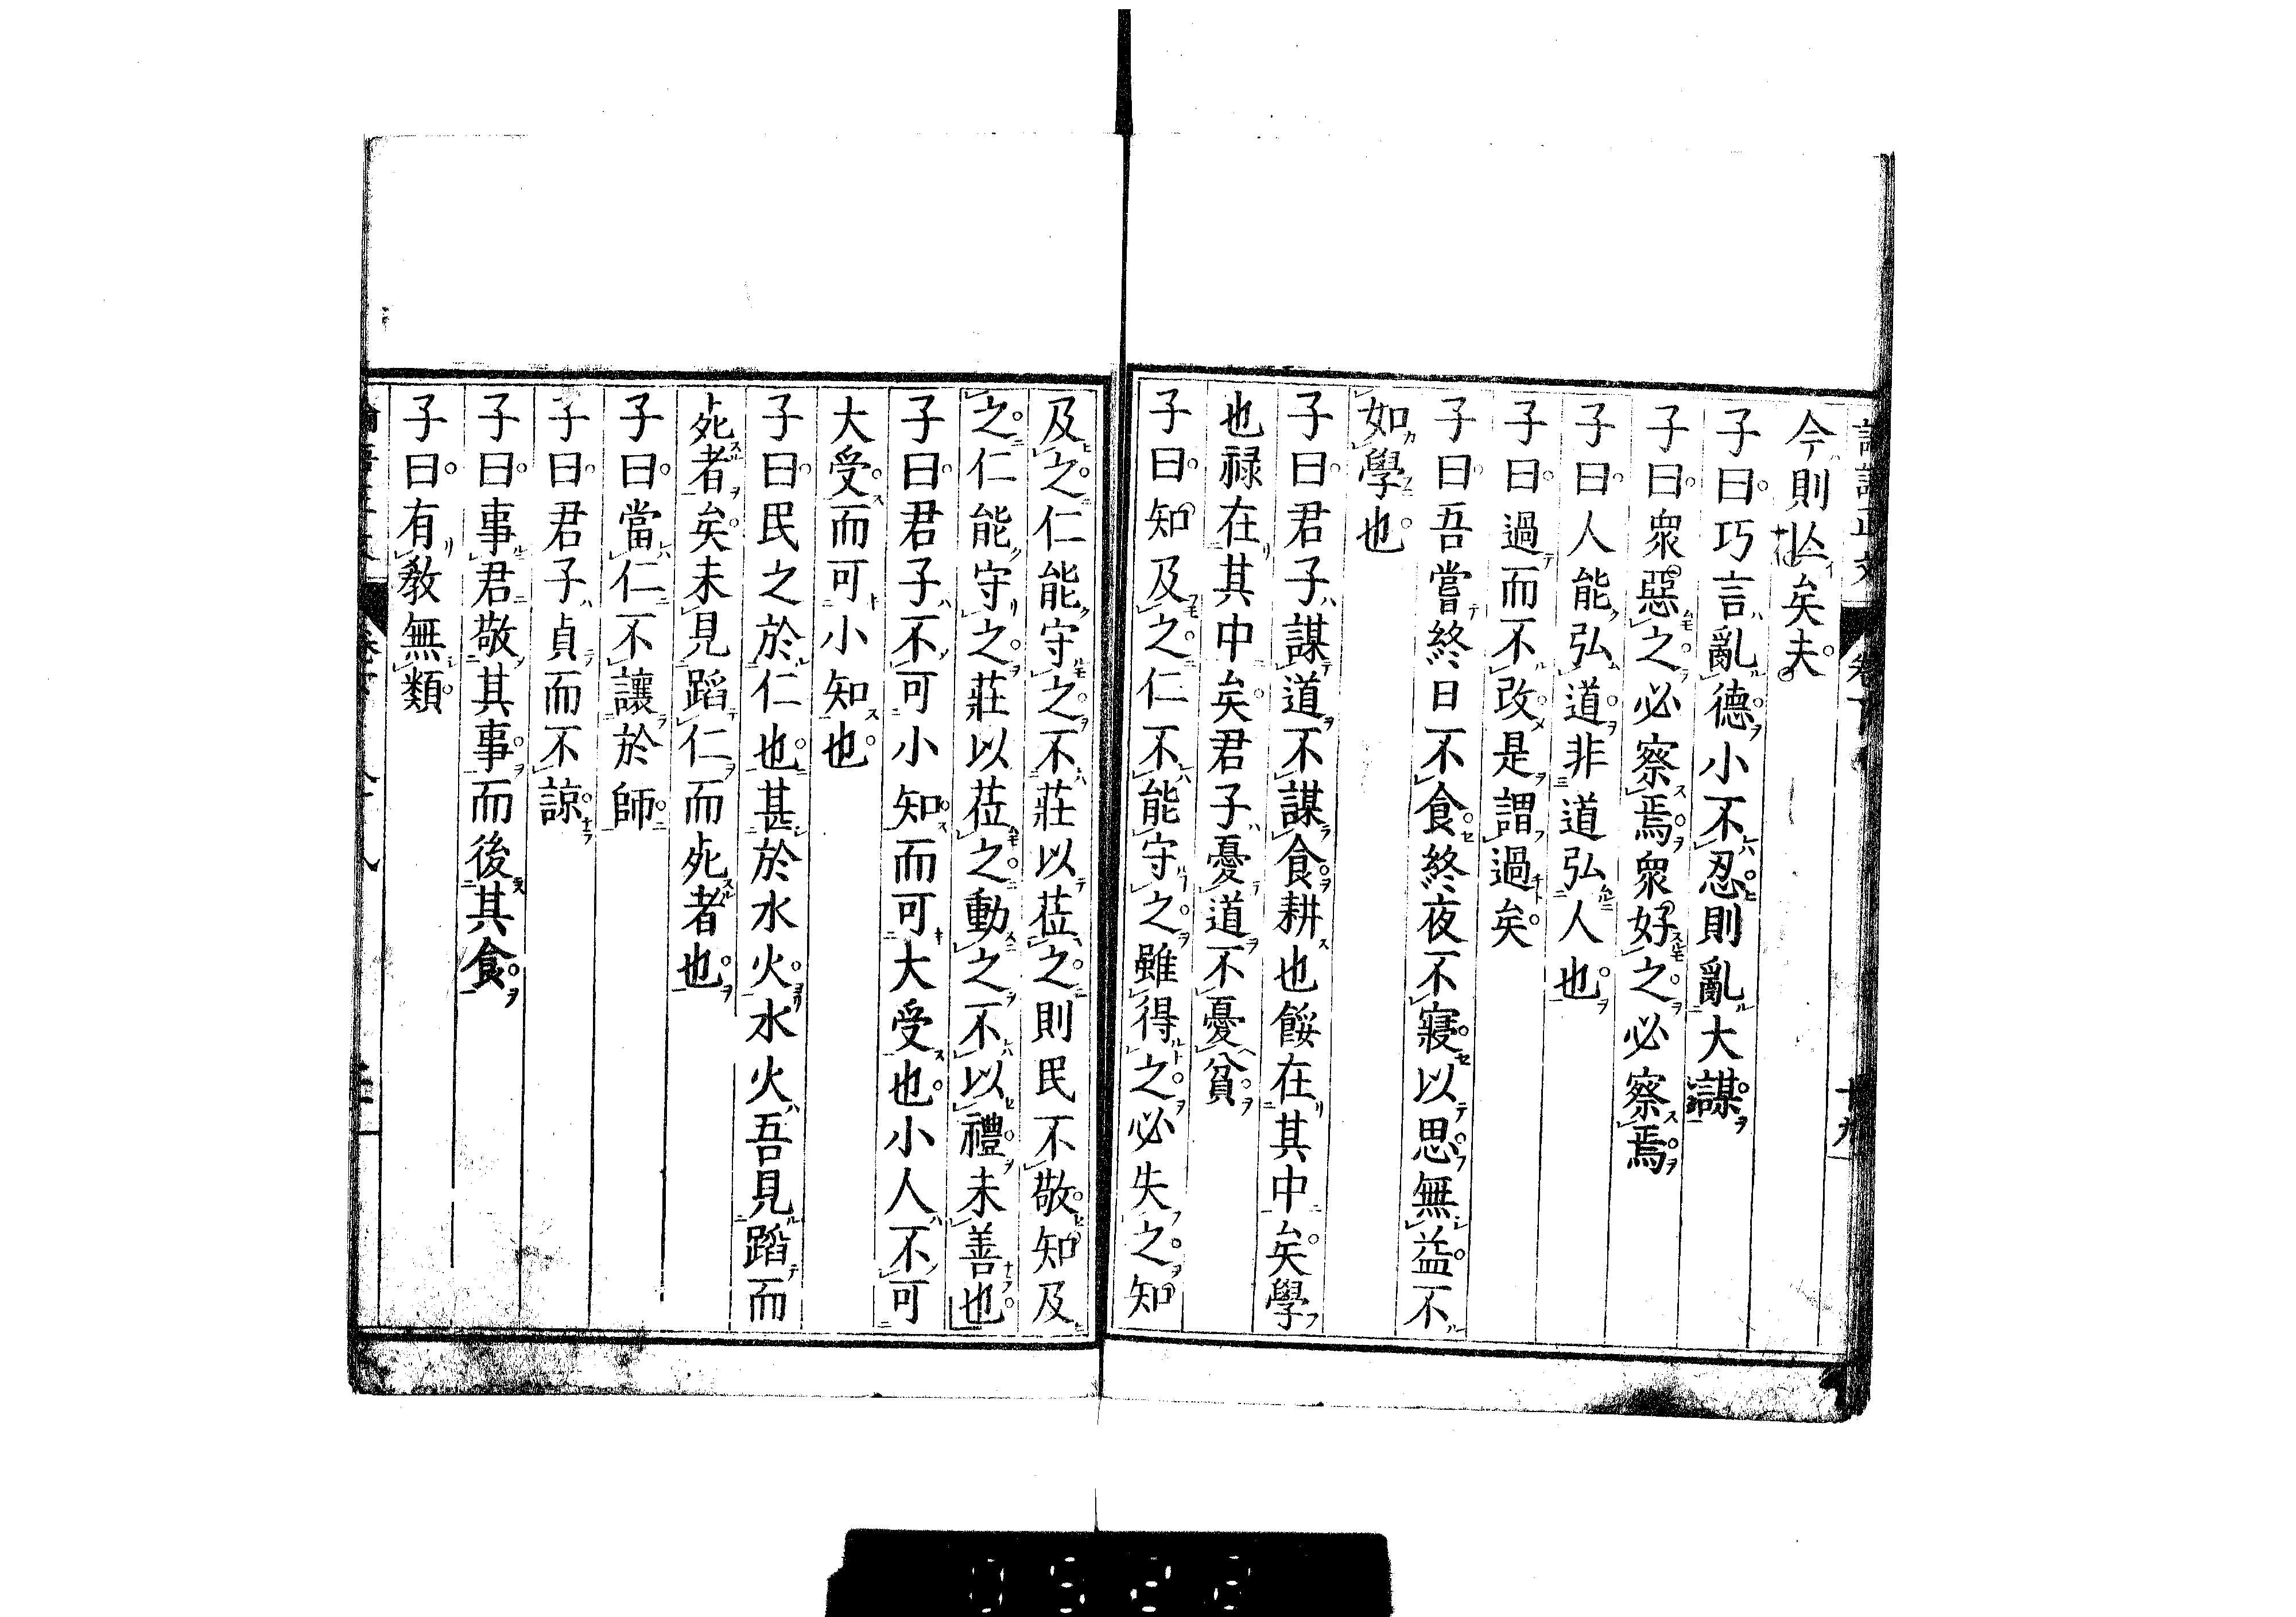 今則亾矣夫
子曰巧言亂德小不忍則亂大謀
子曰衆惡之必察焉衆好之必察焉
子曰人能弘道非道弘人也
子曰過而不改是謂過矣
子曰吾嘗終日不食終夜不寢以思無益不
如學也
子曰君子謀道不謀食耕也餒在其中矣學
也禄在其中矣君子憂道不憂貧
子曰知及之仁不能守之雖得之必失之知
及之仁能守之不莊以莅之則民不敬知及
之仁能守之莊以莅之動之不以禮未善也
子曰君子不可小知而可大受也小人不可
大受而可小知也
子曰民之於仁也甚於水火水火吾見蹈而
死者矣未見蹈仁而死者也
子曰當仁不讓於師
子曰君子貞而不諒
子曰事君敬其事而後其食
子曰有教無類